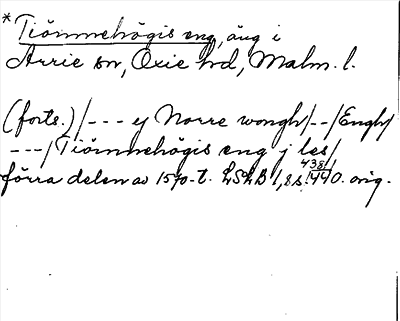 *Tiömnehögis eng, äng i
Arrie sn, Oxie hd, Malm. l.
(forts.) /--- ej Norre wongh/--/Engh/
---/Tiömnehögis eng j les/
förra delen av 1570-t. LSLB 1, 8 s. 438/
440. orig.